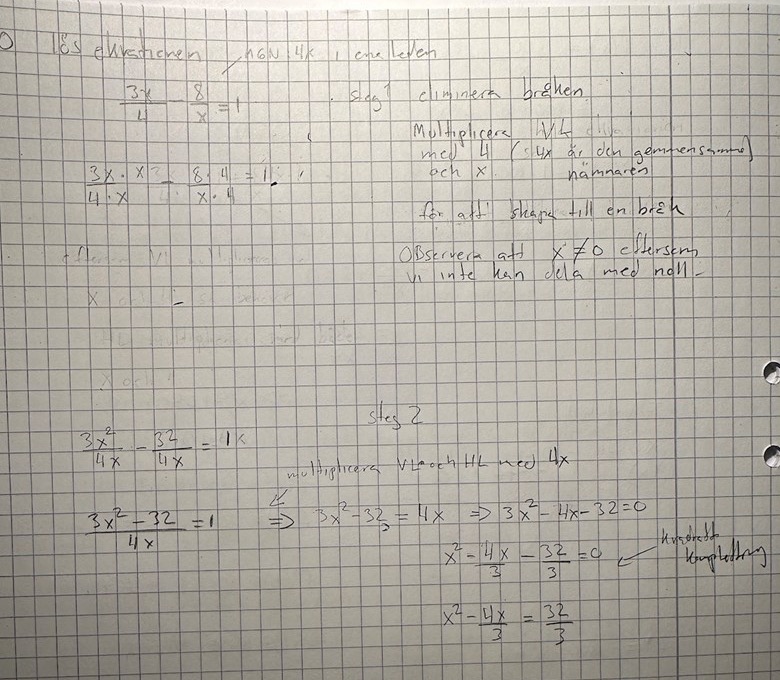 lös ekvationen MGN: 4x i ena leden
3x/4 - 8/x = 1
steg 1 eliminera bråken
Multiplicera VL
med 4 (4x är den gemensamma)
och x nämnaren
3x·x/4·x - 8·4/x·4 = 1
för att skapa till en bråk
Observera att x ≠ 0 eftersom
vi inte kan dela med noll
steg 2
3x²/4x - 32/4x = 1
multiplicera VL och HL med 4x
3x² - 32/4x = 1 ⇒ 3x² - 32 = 4x ⇒ 3x² - 4x - 32 = 0
x² - 4x/3 - 32/3 = 0
x² - 4x/3 = 32/3